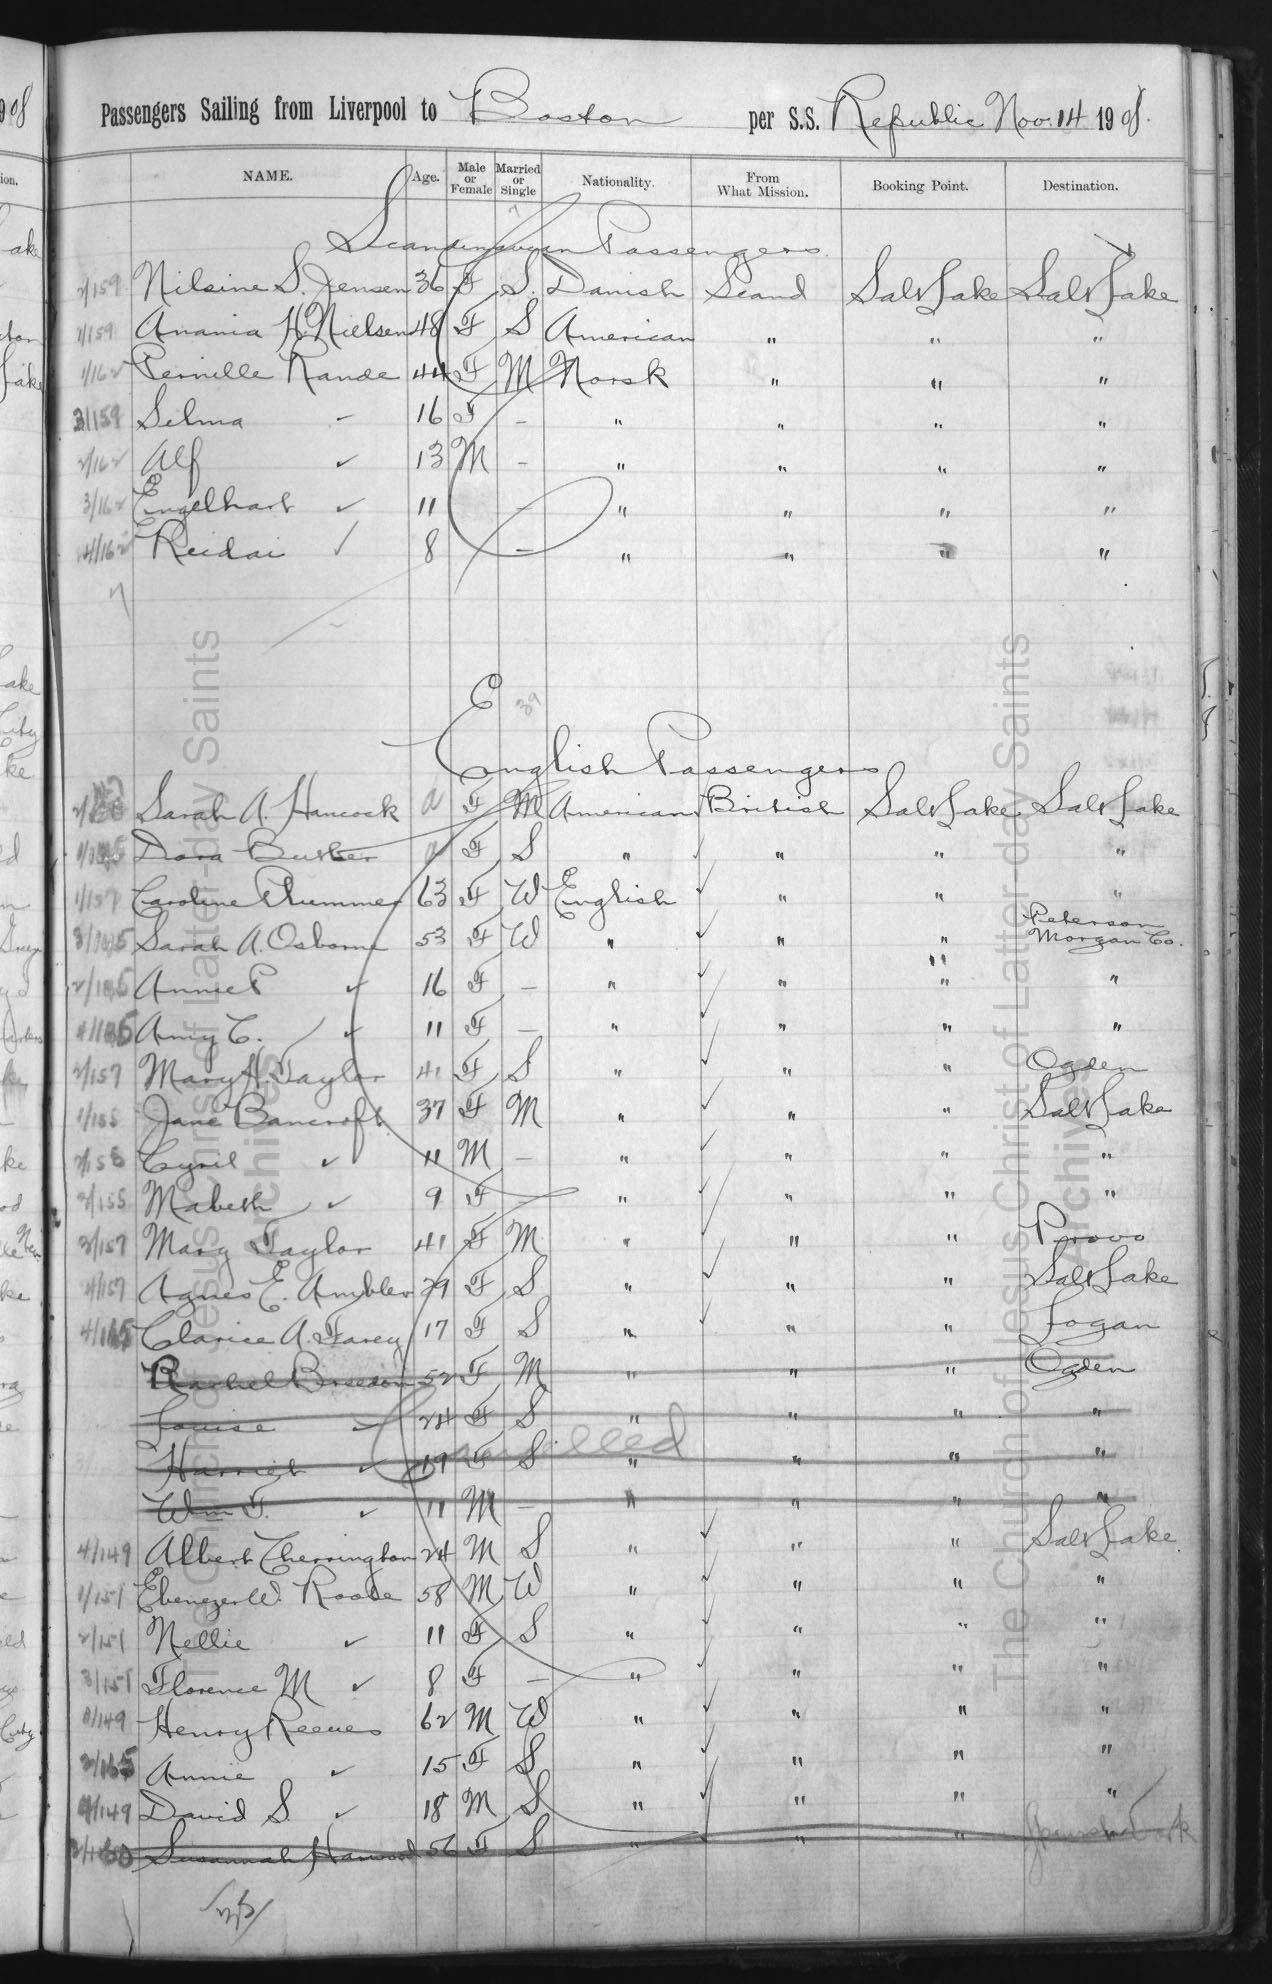 Passengers Sailing from Liverpool to Boston per S.S. Republic Nov. 14 1908.
NAME. Age. Male or Female Married or Single Nationality. From What Mission. Booking Point. Destination.
Scandinavian Passengers
2/159 Nilsine S. Jensen 36 F S. Danish Scand Salt Lake Salt Lake
1/159 Anania H. Nielsen 48 F S American " " "
1/162 Pernille Rande 44 F M Norsk " " "
3/159 Selma - 16 F - " " " "
2/162 Alf ✓ 13 M - " " " "
3/162 Engelhart ✓ 11 - " " " "
4/162 Reidai ✓ 8 - " " " "
7
39
English Passengers
Sarah A. Hancock a F M American British Salt Lake Salt Lake
Dora Butler a F S " ✓ " " "
1/157 Caroline Plummer 63 F W English ✓ " " "
Sarah A. Osborne 53 F W " ✓ " " Peterson Morgan Co.
Annie P ✓ 16 F - " ✓ " " "
Amy C. ✓ 11 F - " ✓ " " "
2/157 Mary H. Taylor 41 F S " ✓ " " Ogden
1/155 Jane Bancroft 37 F M " ✓ " " Salt Lake
Cyril ✓ 11 M - " ✓ " " "
2/155 Mabeth ✓ 9 F " ✓ " " "
3/157 Mary Taylor 41 F M " ✓ " " Provo
4/157 Agnes E. Ambler 29 F S " ✓ " " Salt Lake
4/165 Clarice A. Farey 17 F S " ✓ " " Logan
Rachel Breedon 52 F M " " " Ogden
Louise ✓ 24 F S " " " "
Cancelled
Harriet ✓ 19 F S " " " "
Wm F. ✓ 11 M - " " " "
4/149 Albert Cherrington 24 M S " ✓ " " Salt Lake
1/151 Ebenezer W. Roode 58 M W " ✓ " " "
2/151 Nellie ✓ 11 F S " ✓ " " "
3/151 Florence M ✓ 8 F - " ✓ " " "
Henry Reeves 62 M W " ✓ " " "
2/165 Annie ✓ 15 F S " ✓ " " "
David S. ✓ 18 M S " ✓ " " "
Susannah Harwood 56 F S " ✓ " "
The Church of Jesus Christ of Latter-day Saints
Archives
The Church of Jesus Christ of Latter-day Saints
Archives